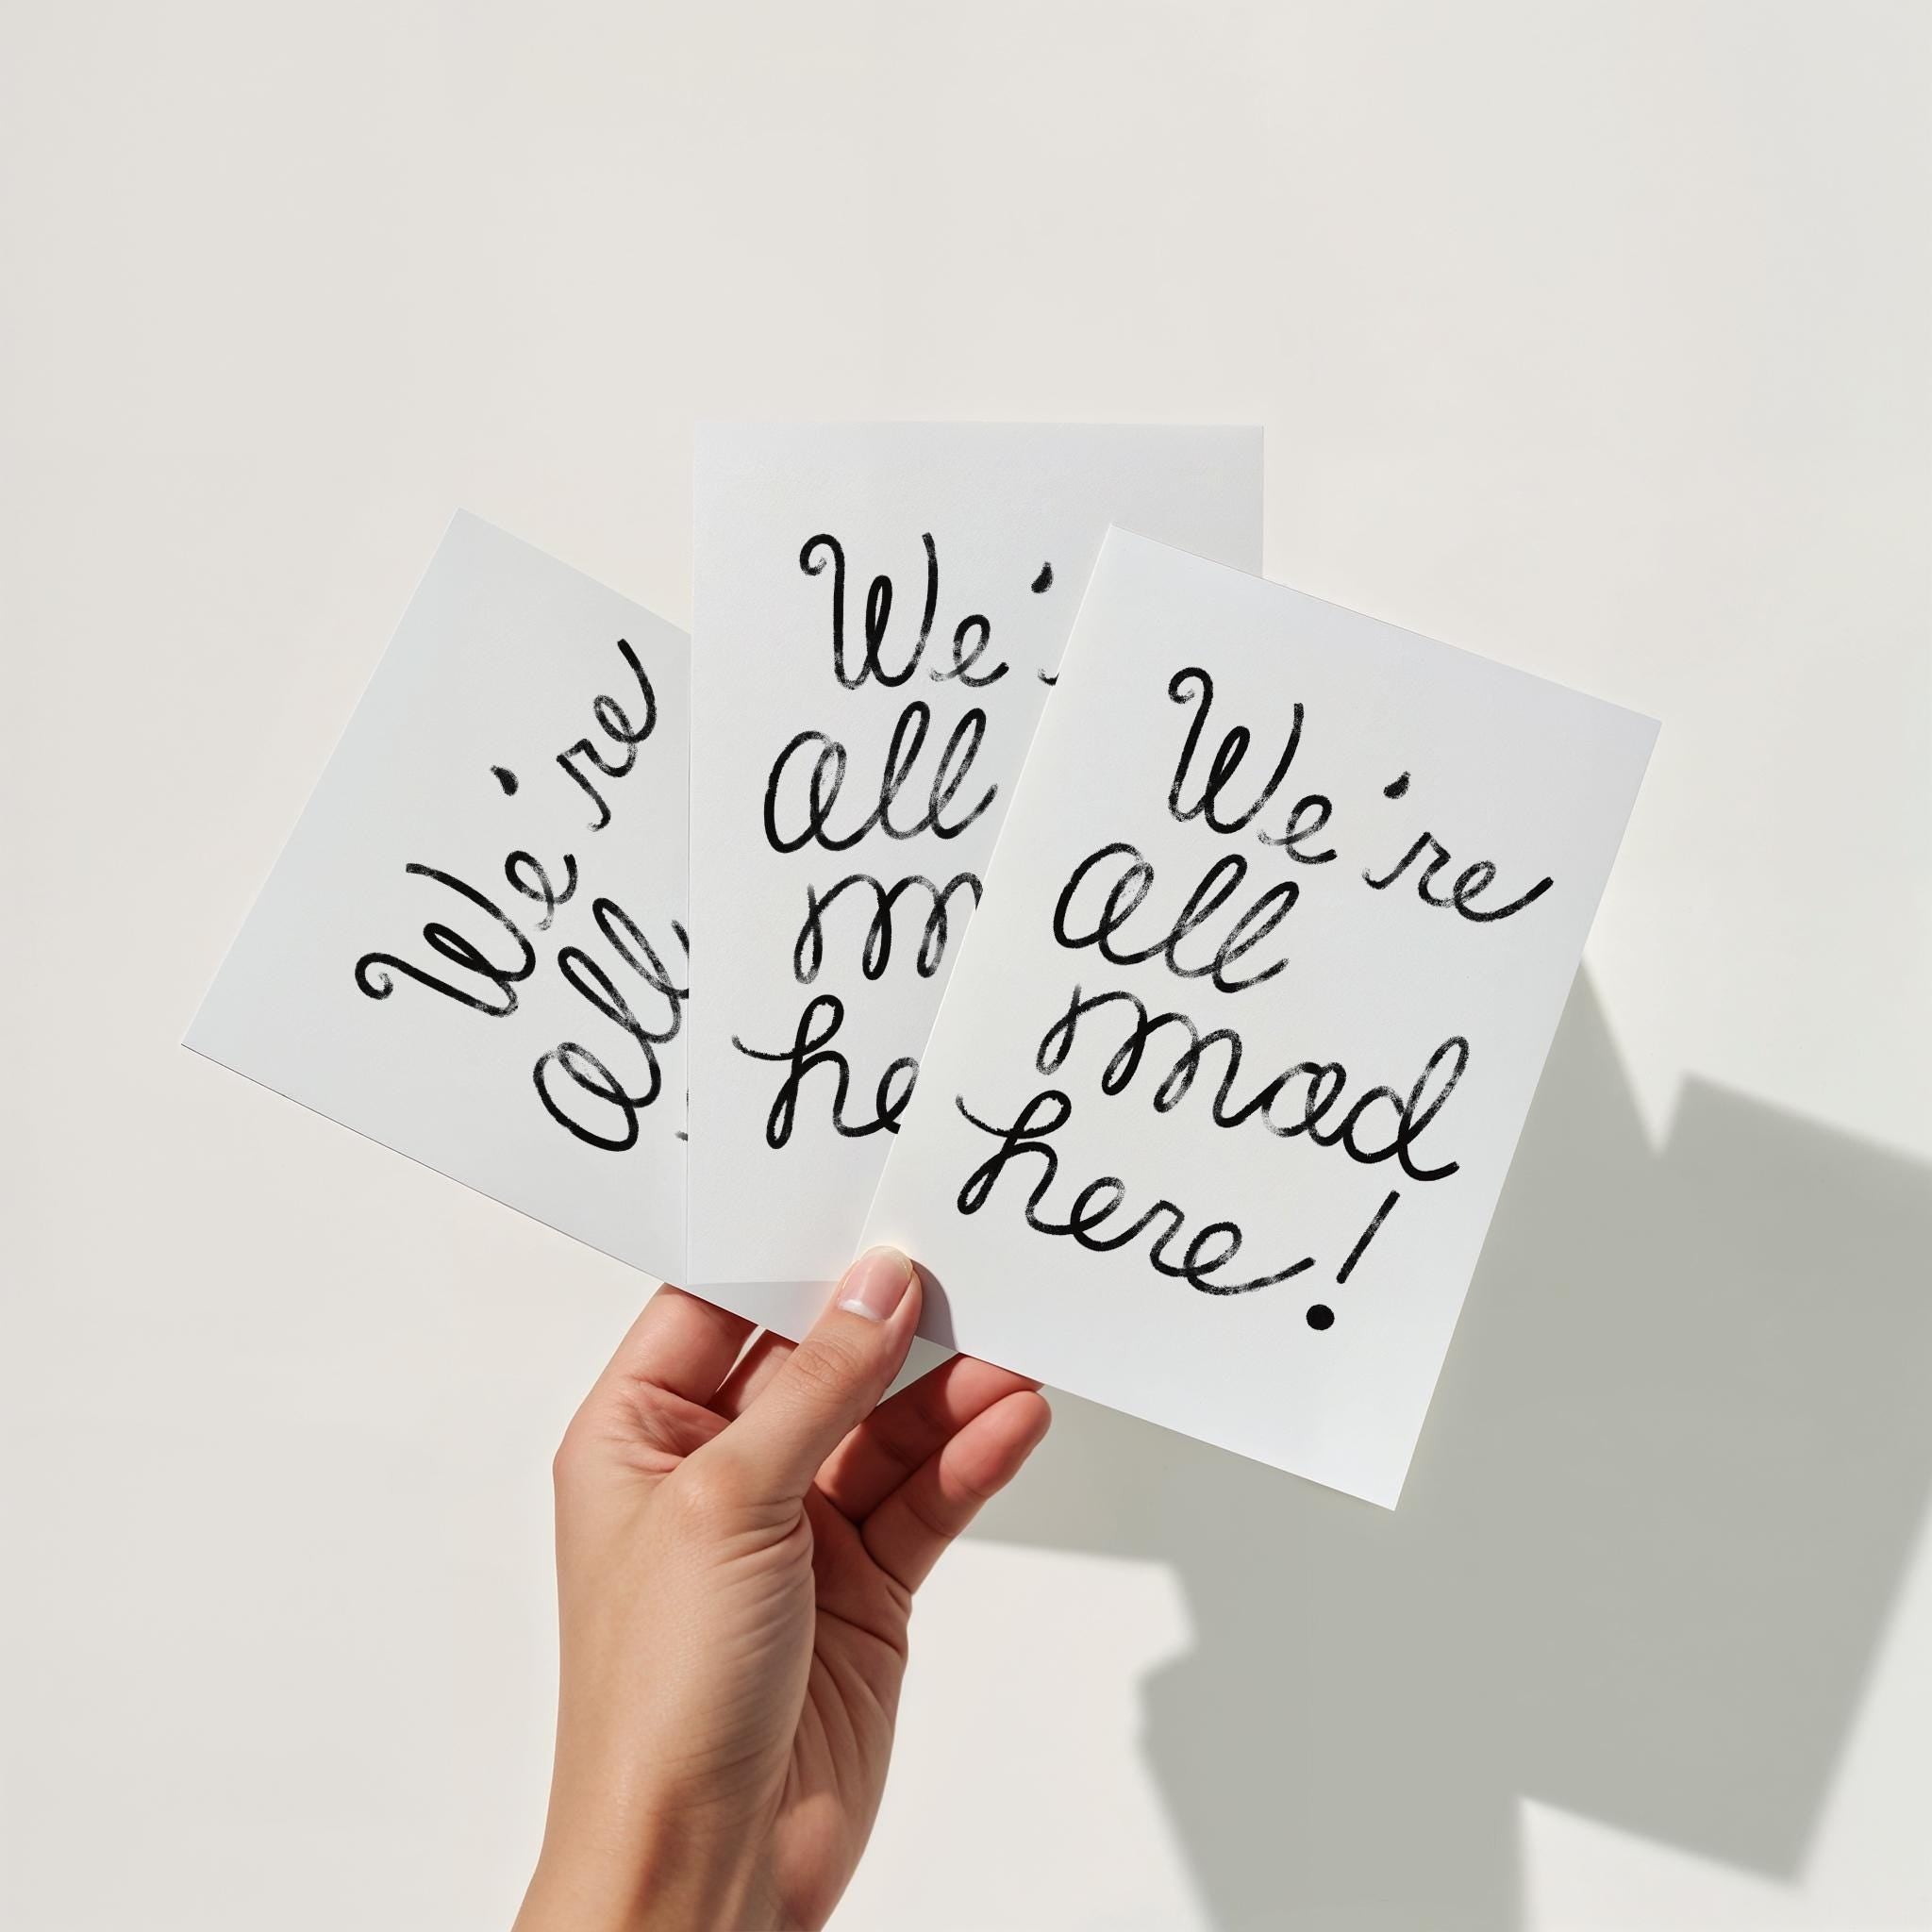 We're
all
We'
all
m
he
We're
all
mad
here!